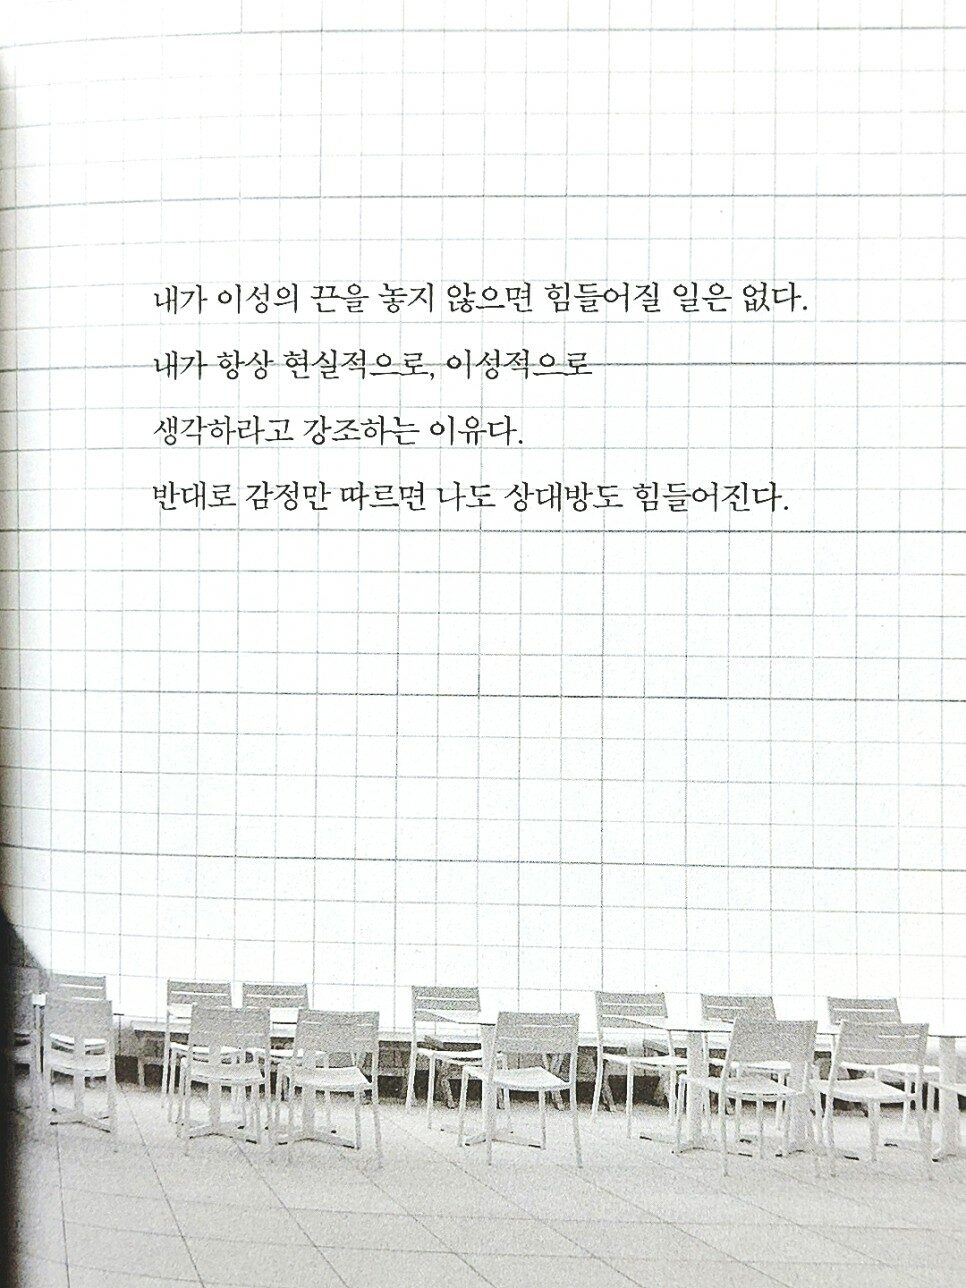 내가 이성의 끈을 놓지 않으면 힘들어질 일은 없다.
내가 항상 현실적으로, 이성적으로
생각하라고 강조하는 이유다.
반대로 감정만 따르면 나도 상대방도 힘들어진다.